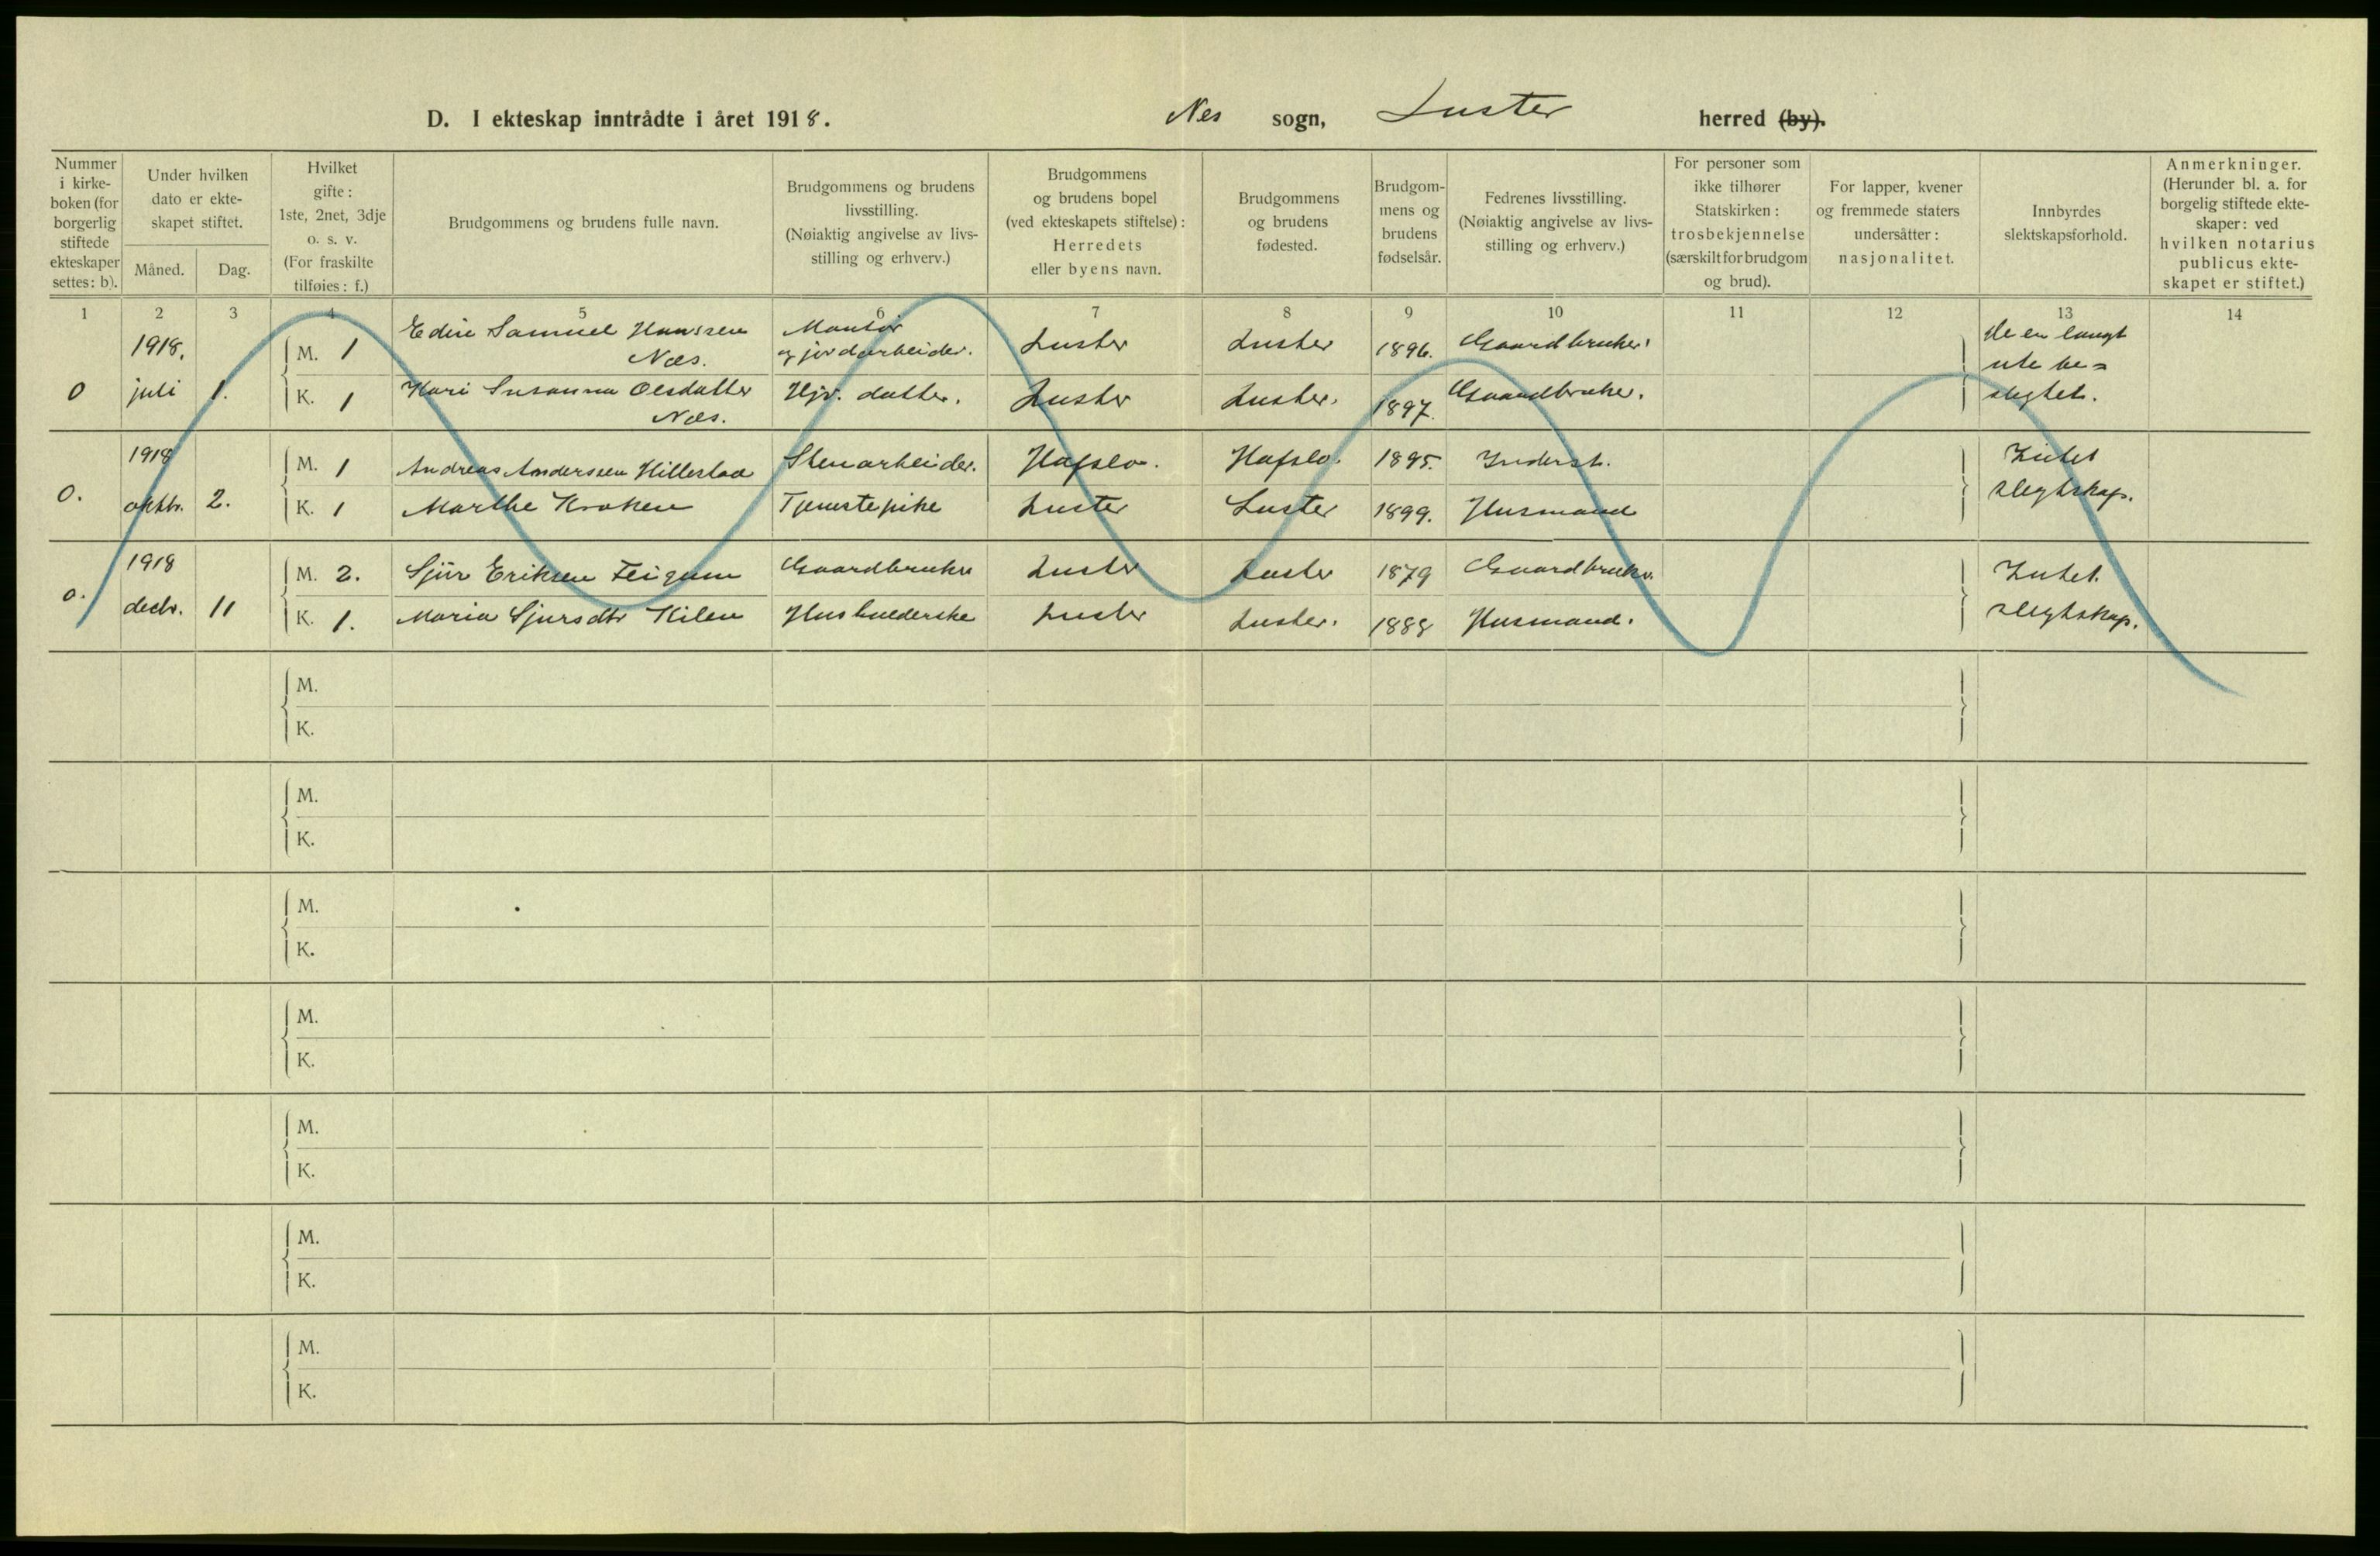 D. I ekteskap inntrådte i året 1918. Nes sogn, Luster herred (by).
Nummer i kirke-boken (for borgerlig stiftede ekteskaper settes: b).
Under hvilken dato er ekte-skapet stiftet.
Måned. Dag.
Hvilket gifte: 1ste, 2net, 3dje o. s. v. (For fraskilte tilføies: f.)
Brudgommens og brudens fulle navn.
Brudgommens og brudens livsstilling. (Nøiaktig angivelse av livs-stilling og erhverv.)
Brudgommens og brudens bopel (ved ekteskapets stiftelse): Herredets eller byens navn.
Brudgommens og brudens fødested.
Brudgom-mens og brudens fødselsår.
Fedrenes livsstilling. (Nøiaktig angivelse av livs-stilling og erhverv.)
For personer som ikke tilhører Statskirken: trosbekjennelse (særskilt for brudgom og brud).
For lapper, kvener og fremmede staters undersåtter: nasjonalitet.
Innbyrdes slektskapsforhold.
Anmerkninger. (Herunder bl. a. for borgelig stiftede ekte-skaper: ved hvilken notarius publicus ekte-skapet er stiftet.)
1 2 3 4 5 6 7 8 9 10 11 12 13 14
0 1918. juli 1.
M. 1 Edin Samuel Hanssen Næs. Montør og jordarbeider. Luster Luster 1896. Gaardbruker.
K. 1 Kari Susanna Olsdatter Næs. Hjv. datter. Luster Luster. 1897. Gaardbruker.
De er langt ute be=slegtet.
0. 1918 oktbr. 2.
M. 1 Andreas Anderssen Hillestad Stenarbeider. Hafslo. Hafslo. 1895. Inderst.
K. 1 Marthe Kroken Tjenestepike Luster Luster 1899. Husmand
Intet slegtskap.
0. 1918 decbr. 11
M. 2. Sjur Eriksen Feigum Gaardbruker Luster Luster 1879 Gaardbruker.
K. 1. Maria Sjursdtr Kilen Husholderske Luster Luster. 1888 Husmand.
Intet slegtskap.
M.
K.
M.
K.
M.
K.
M.
K.
M.
K.
M.
K.
M.
K.